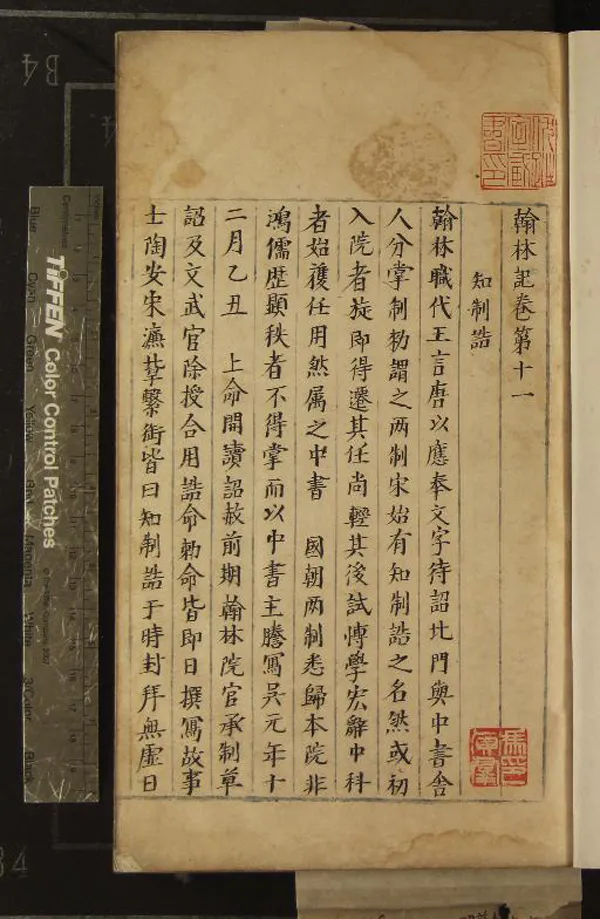 翰林記卷第十一
知制誥
翰林職代王言唐以應奉文字待詔北門與中書舍
人分掌制勑謂之两制宋始有知制誥之名然或初
入院者旋即得遷其任尚輕其後試愽學宏辭中科
者始獲任用然属之中書 國朝两制悉歸本院非
鴻儒歴顯秩者不得掌而以中書主謄寫吴元年十
二月乙丑 上命開讀詔赦前期翰林院官承制草
詔及文武官除授合用誥命勑命皆即日撰寫故事
士陶安宋濂摰繫銜皆曰知制誥于時封拜無虚日
B4
84
TIFFEN Color Control Patches
Centimetres
Blue
Cyan
Green
Yellow
Red
Magenta
White
3/Color
Black